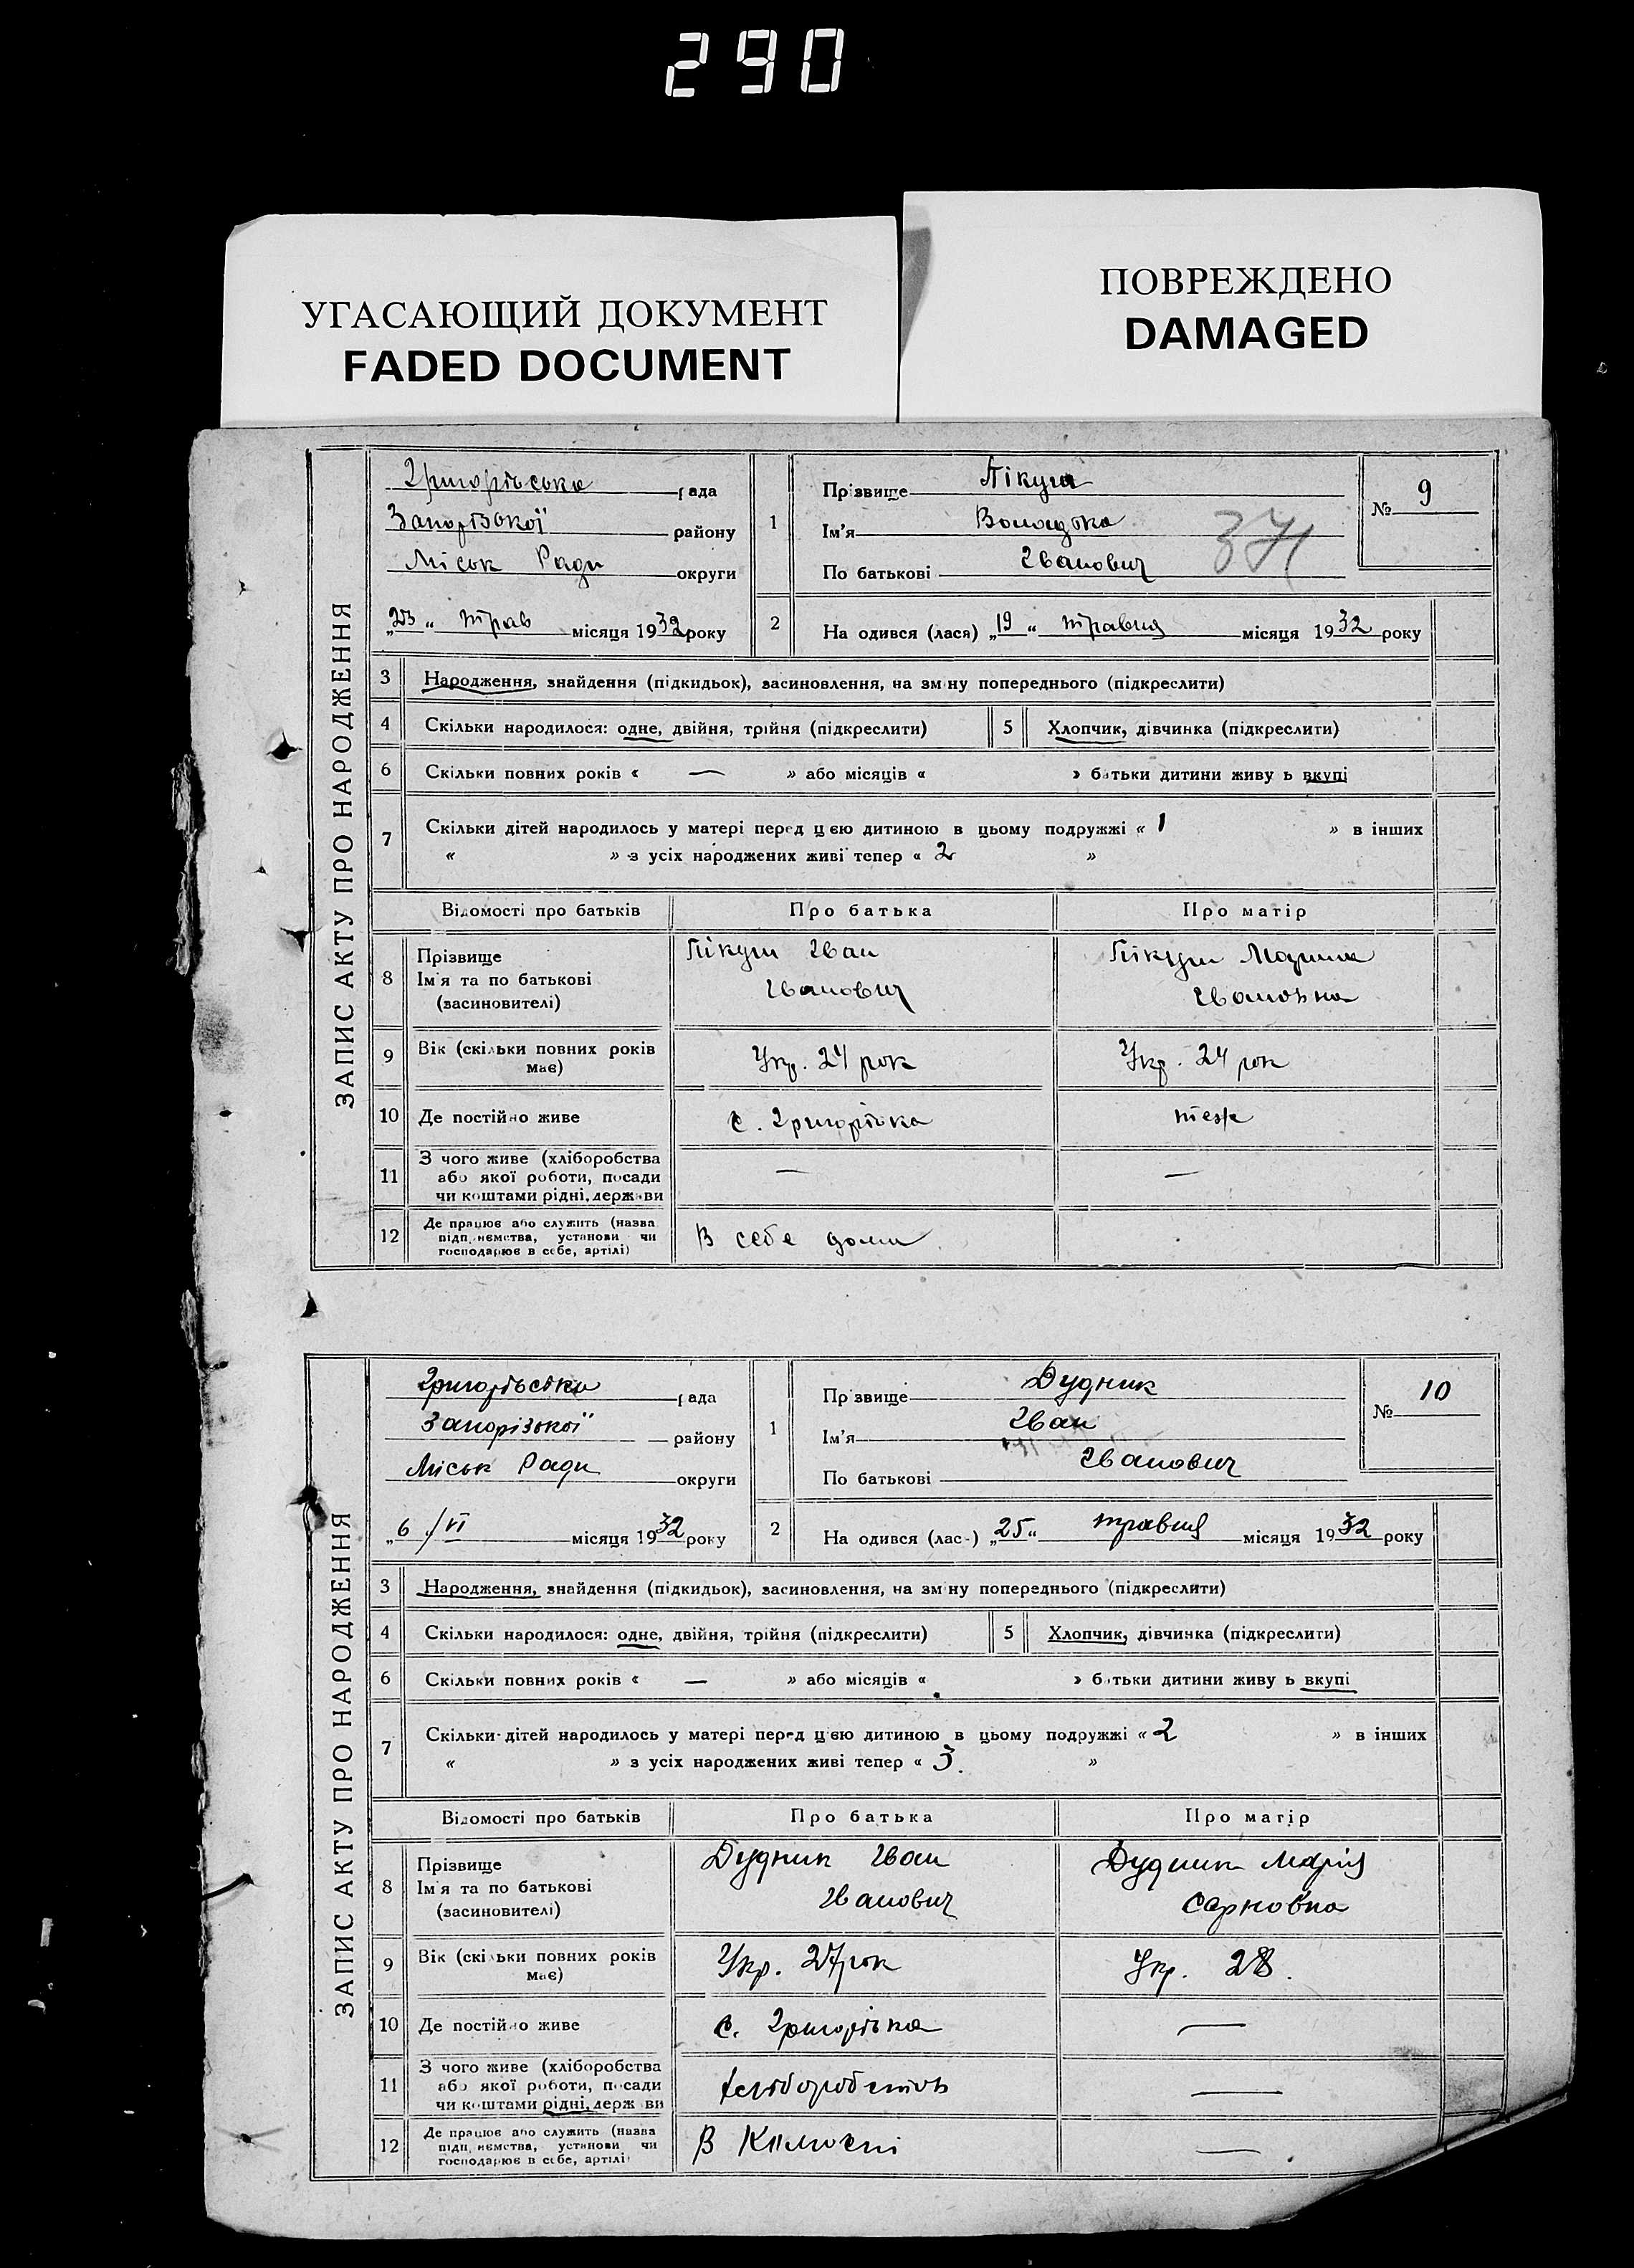 290
УГАСАЮЩИЙ ДОКУМЕНТ
FADED DOCUMENT
ПОВРЕЖДЕНО
DAMAGED
ЗАПИС АКТУ ПРО НАРОДЖЕННЯ
Григорівська рада
Запорізької району
Міськ Ради округи
„23“ трав місяця 1932 року
1
Прізвище Пікуш
Ім'я
По батькові Іванович
374
№ 9
2 На одився (лася) „19“ травня місяця 1932 року
3 Народження, знайдення (підкидьок), засиновлення, на зм ну попереднього (підкреслити)
4 Скільки народилося: одне, двійня, трійня (підкреслити) 5 Хлопчик, дівчинка (підкреслити)
6 Скільки повних років « — » або місяців « » батьки дитини живу ь вкупі
7 Скільки дітей народилось у матері перед цєю дитиною в цьому подружжі « 1 » в інших
« » з усіх народжених живі тепер « 2 »
Відомості про батьків Про батька Про матір
8 Прізвище
Ім'я та по батькові
(засиновителі)
Пікуш Іван
Іванович
Пікуш Марина
Івановна
9 Вік (скільки повних років
має)
Укр. 24 рок
Укр. 24 рок
10 Де постійно живе с. Григорівка теж
11 З чого живе (хліборобства
або якої роботи, посади
чи коштами рідні, держави
—
—
12 Де працює або служить (назва
підп иємства, установи чи
господарює в себе, артілі)
В себе дома
ЗАПИС АКТУ ПРО НАРОДЖЕННЯ
Григорівська рада
Запорізької району
Міськ Ради округи
„6 /VI місяця 1932 року
1
Пр звище Дудник
Ім'я Іван
По батькові Іванович
№ 10
2 На одився (лас-) „25“ травня місяця 1932 року
3 Народження, знайдення (підкидьок), засиновлення, на зм ну попереднього (підкреслити)
4 Скільки народилося: одне, двійня, трійня (підкреслити) 5 Хлопчик, дівчинка (підкреслити)
6 Скільки повних років « — » або місяців « » батьки дитини живу ь вкупі
7 Скільки дітей народилось у матері перед цєю дитиною в цьому подружжі « 2 » в інших
« » з усіх народжених живі тепер « 3. »
Відомості про батьків Про батька Про матір
8 Прізвище
Ім'я та по батькові
(засиновителі)
Дудник Іван
Іванович
Дудник Марія
9 Вік (скільки повних років
має)
Укр. 27 рок
Укр. 28.
10 Де постійно живе с. Григорівка —
11 З чого живе (хліборобства
або якої роботи, посади
чи коштами рідні, держ ви
—
12 Де працює або служить (назва
підп иємства, установи чи
господарює в себе, артілі)
В
—